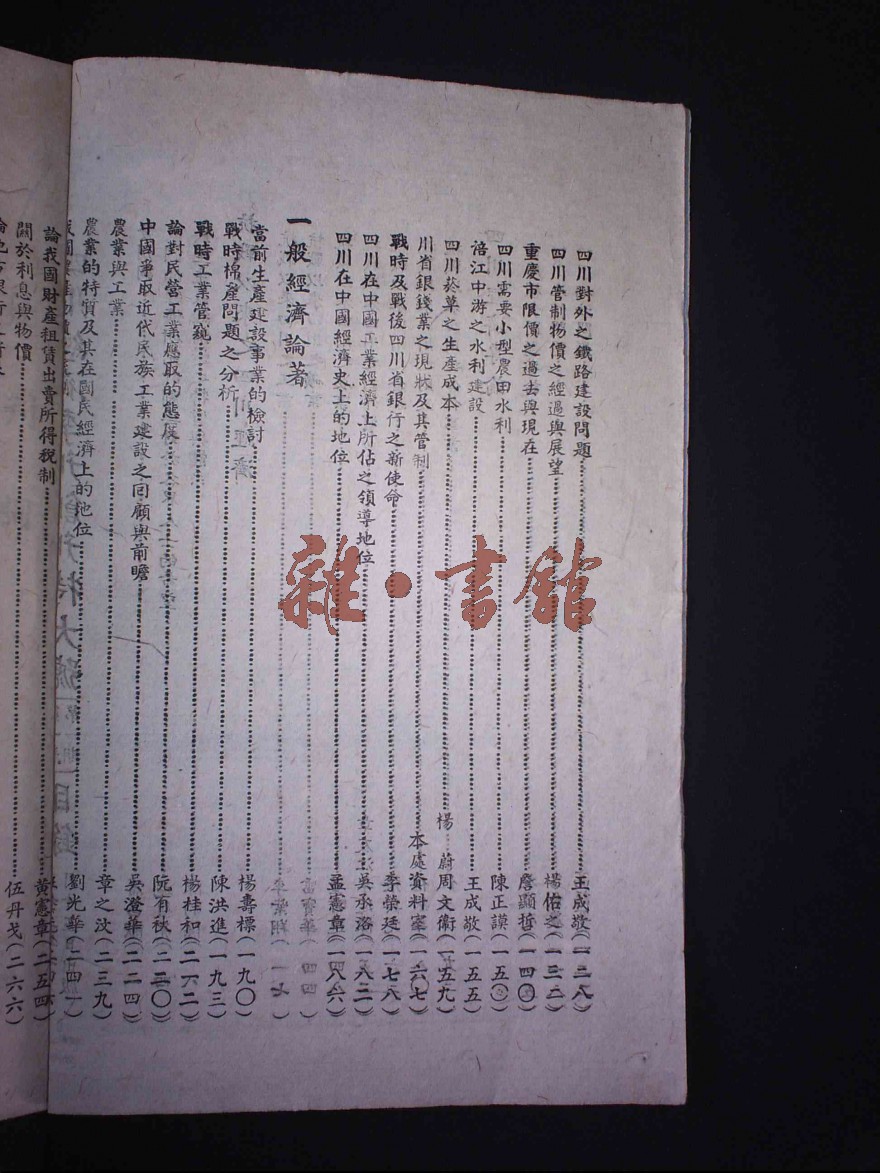 四川對外之鐵路建設問題……王成敬(一二八)
四川管制物價之經過與展望……楊佑之(一三二)
重慶市限價之過去與現在……詹顯哲(一四〇)
四川需要小型農田水利……陳正謨(一五〇)
涪江中游之水利建設……王成敬(一五五)
四川菸草之生產成本……楊 蔚 周文衞(一五九)
川省銀錢業之現狀及其管制……本處資料室(一六七)
戰時及戰後四川省銀行之新使命……李榮廷(一七八)
四川在中國工業經濟上所佔之領導地位……吳丞洛(一八二)
四川在中國經濟史上的地位……孟憲章(一八六)
一般經濟論著
當前生產建設事業的檢討……楊壽標(一九〇)
戰時棉產問題之分析……陳洪進(一九三)
戰時工業管窺……楊桂和(二一二)
論對民營工業應取的態度……阮有秋(二二〇)
中國爭取近代民族工業建設之回顧與前瞻……吳澄華(二二四)
農業與工業……章之汶(二三九)
農業的特質及其在國民經濟上的地位……劉光華(二四一)
論我國財產租賃出賣所得稅制……黃憲章(二五四)
關於利息與物價……伍丹戈(二六六)
雜·書館